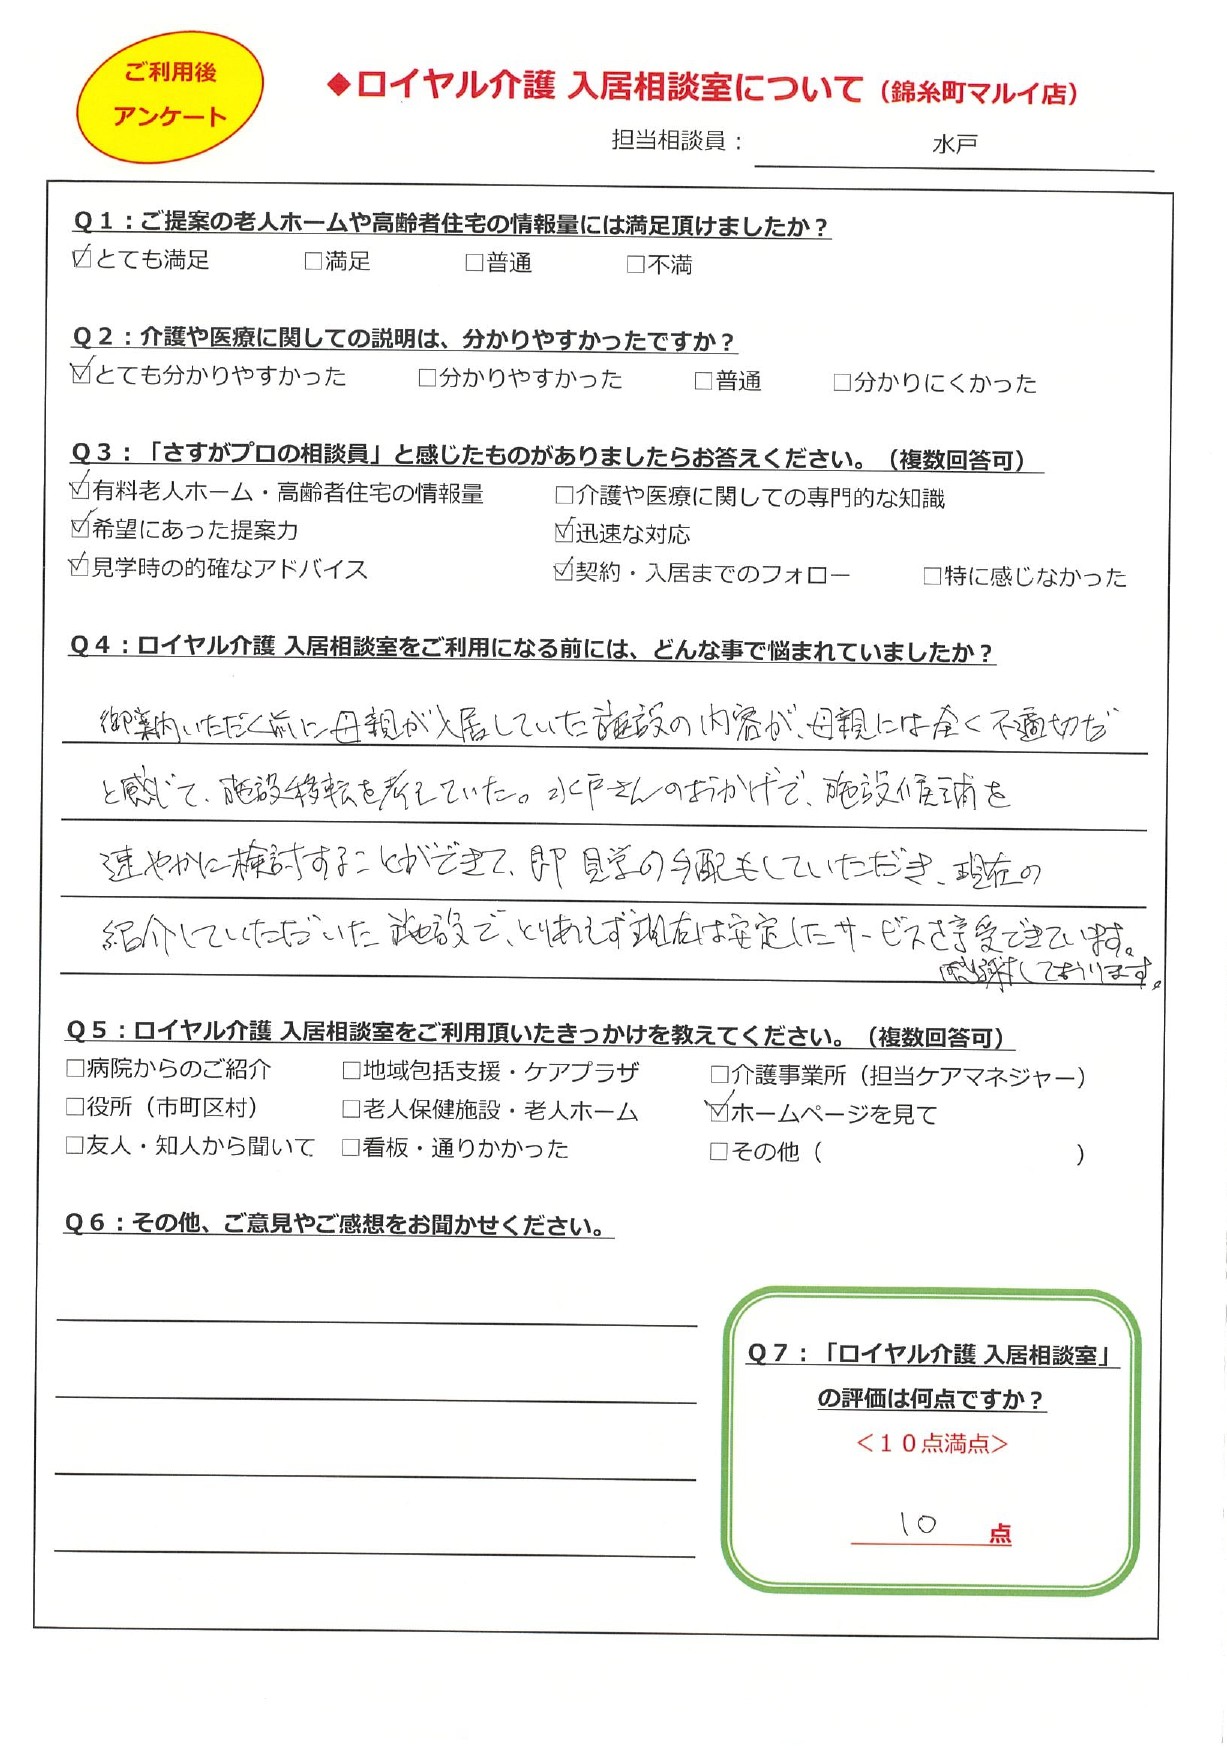 ご利用後
アンケート
◆ロイヤル介護 入居相談室について（錦糸町マルイ店）
担当相談員： 水戸
Q１：ご提案の老人ホームや高齢者住宅の情報量には満足頂けましたか？
☑とても満足 □満足 □普通 □不満
Q２：介護や医療に関しての説明は、分かりやすかったですか？
☑とても分かりやすかった □分かりやすかった □普通 □分かりにくかった
Q３：「さすがプロの相談員」と感じたものがありましたらお答えください。（複数回答可）
☑有料老人ホーム・高齢者住宅の情報量 □介護や医療に関しての専門的な知識
☑希望にあった提案力 ☑迅速な対応
☑見学時の的確なアドバイス ☑契約・入居までのフォロー □特に感じなかった
Q４：ロイヤル介護 入居相談室をご利用になる前には、どんな事で悩まれていましたか？
御案内いただく前に母親が入居していた施設の内容が、母親には全く不適切だ
と感じて、施設移転を考えていた。水戸さんのおかげで、施設候補を
速やかに検討することができて、即見学の手配もしていただき、現在の
紹介していただいた施設で、とりあえず現在は安定したサービスを享受できています。
感謝しております。
Q５：ロイヤル介護 入居相談室をご利用頂いたきっかけを教えてください。（複数回答可）
□病院からのご紹介 □地域包括支援・ケアプラザ □介護事業所（担当ケアマネジャー）
□役所（市町区村） □老人保健施設・老人ホーム ☑ホームページを見て
□友人・知人から聞いて □看板・通りかかった □その他（ ）
Q６：その他、ご意見やご感想をお聞かせください。
Q７：「ロイヤル介護 入居相談室」
の評価は何点ですか？
＜１０点満点＞
10 点